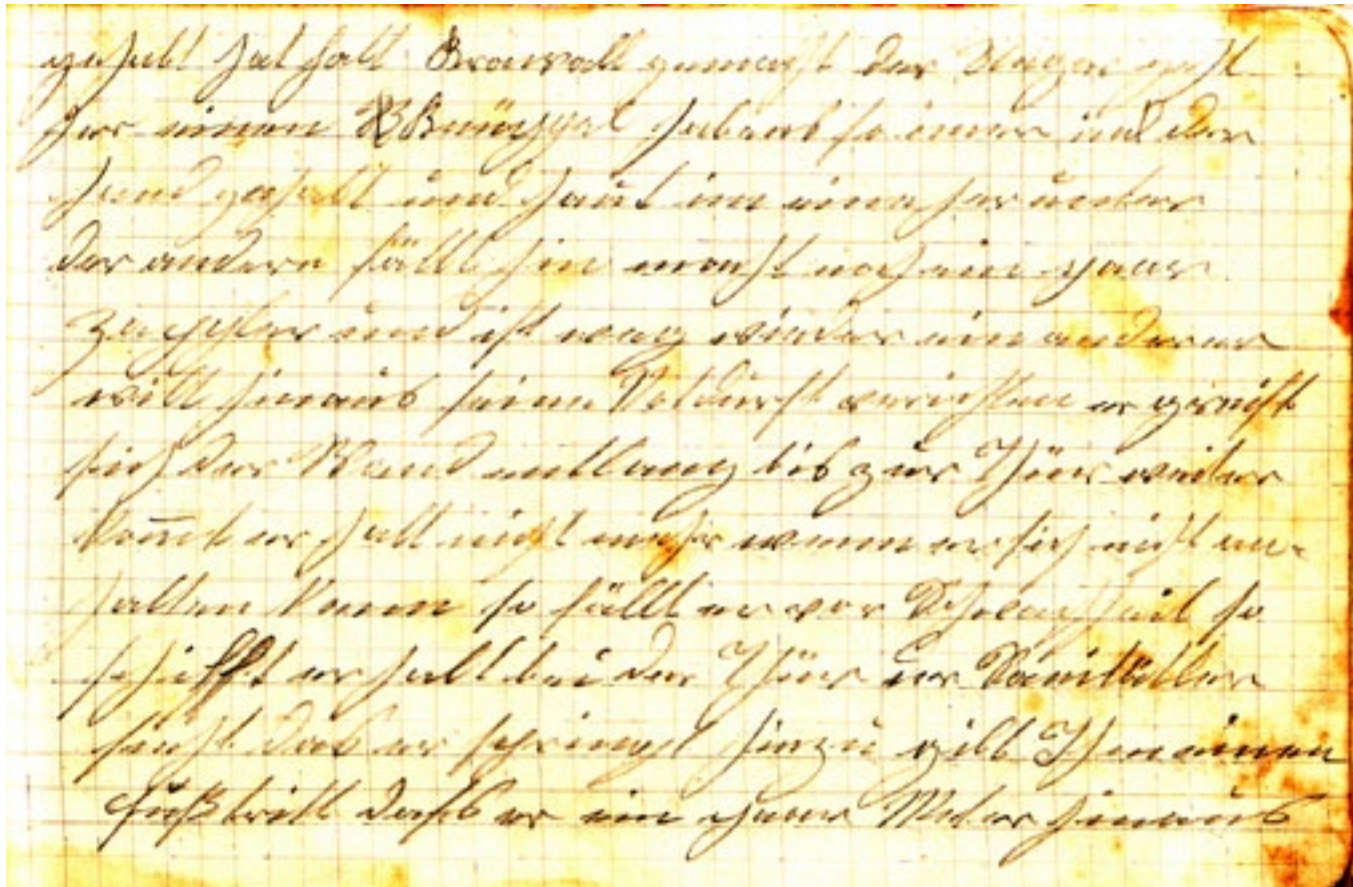 gehabt hat halt Krawall gemacht der Kaiser geht
her einen Brüggel haben so immer in der
Hand gehabt und haut im eine herunter
der andere fällt hin macht noch ein paar
Zappler und ist weg wieder ein anderer
will hinaus seine Notdurft verrichten er greift
sich der Wand entlang bis zur Thür weiter
kannt er halt nicht mehr wenn er sich nicht an-
halten kann so fällt er vor Schwachheit so
schifft er halt bei der Thür der Sanitöter
sieht das er springt hinzu gibt Ihm einen
fußtritt dahs er ein paar Meter hinaus